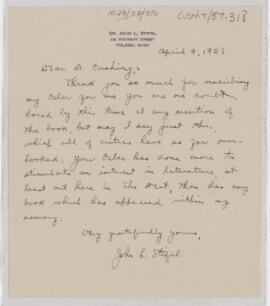 CUSH/7/57.313
DR. JOHN L. STIFEL
TOLEDO, OHIO
April 9, 1926
Dear Dr. Cushing,
Thank you so much for inscribing
my Osler for me. You are no doubt
bored by this time at any mention of
the book, but may I say just this,
which all of critics have so far over-
looked. Your Osler has done more to
stimulate an interest in literature, at
least out here in the West, than has any
book which has appeared within my
memory.
Very gratefully yours,
John L. Stifel